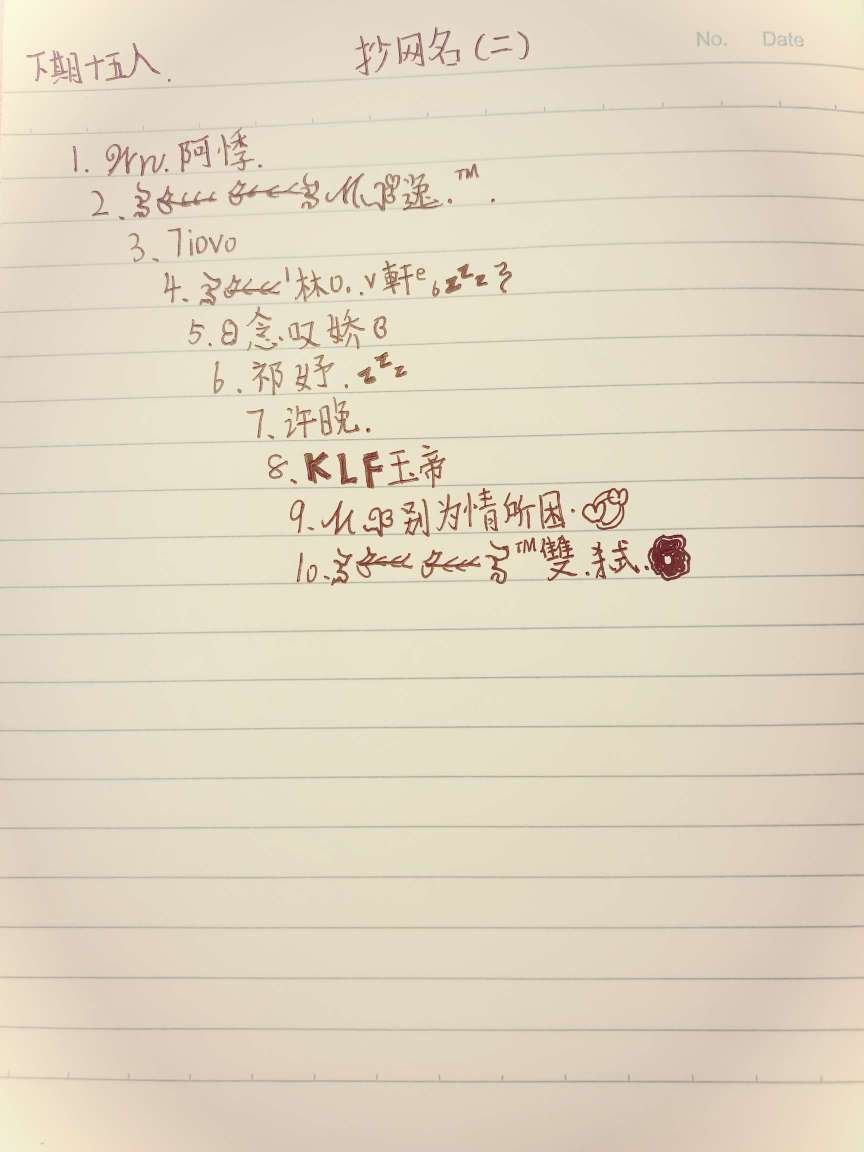 下期十五人.
抄网名(二)
No. Date
1. Mv.阿悸.
2. 遥.™.
3. 7iovo
4. 林o..v軒e zzz
5. 日念叹娇
6. 祁妤.zzz
7. 许晚.
8. KLF玉帝
9. 别为情所困.
10. ™雙.弑.